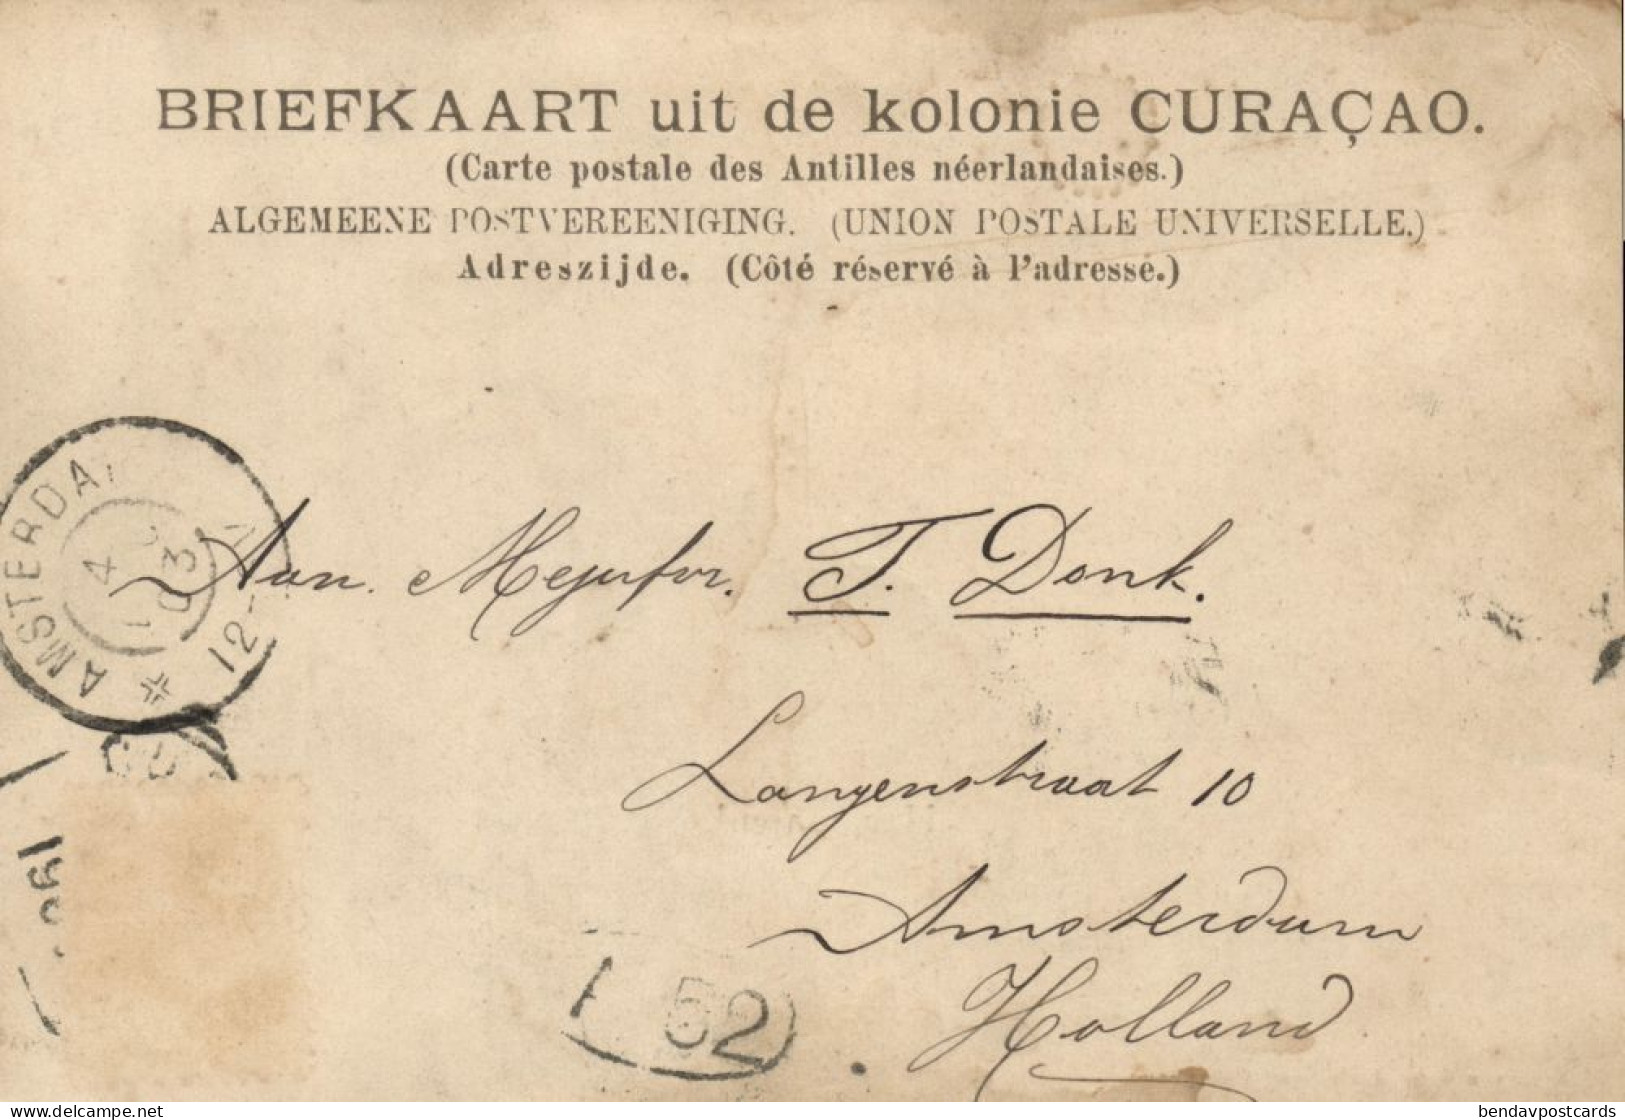 BRIEFKAART uit de kolonie CURAÇAO.
(Carte postale des Antilles néerlandaises.)
ALGEMEENE POSTVEREENIGING. (UNION POSTALE UNIVERSELLE.)
Adreszijde. (Côté réservé à l'adresse.)
AMSTERDA
4
03
12-
Aan. Mejufvr. T. Donk.
Langenstraat 10
Amsterdam
Holland
52
www.delcampe.net
bendavpostcards